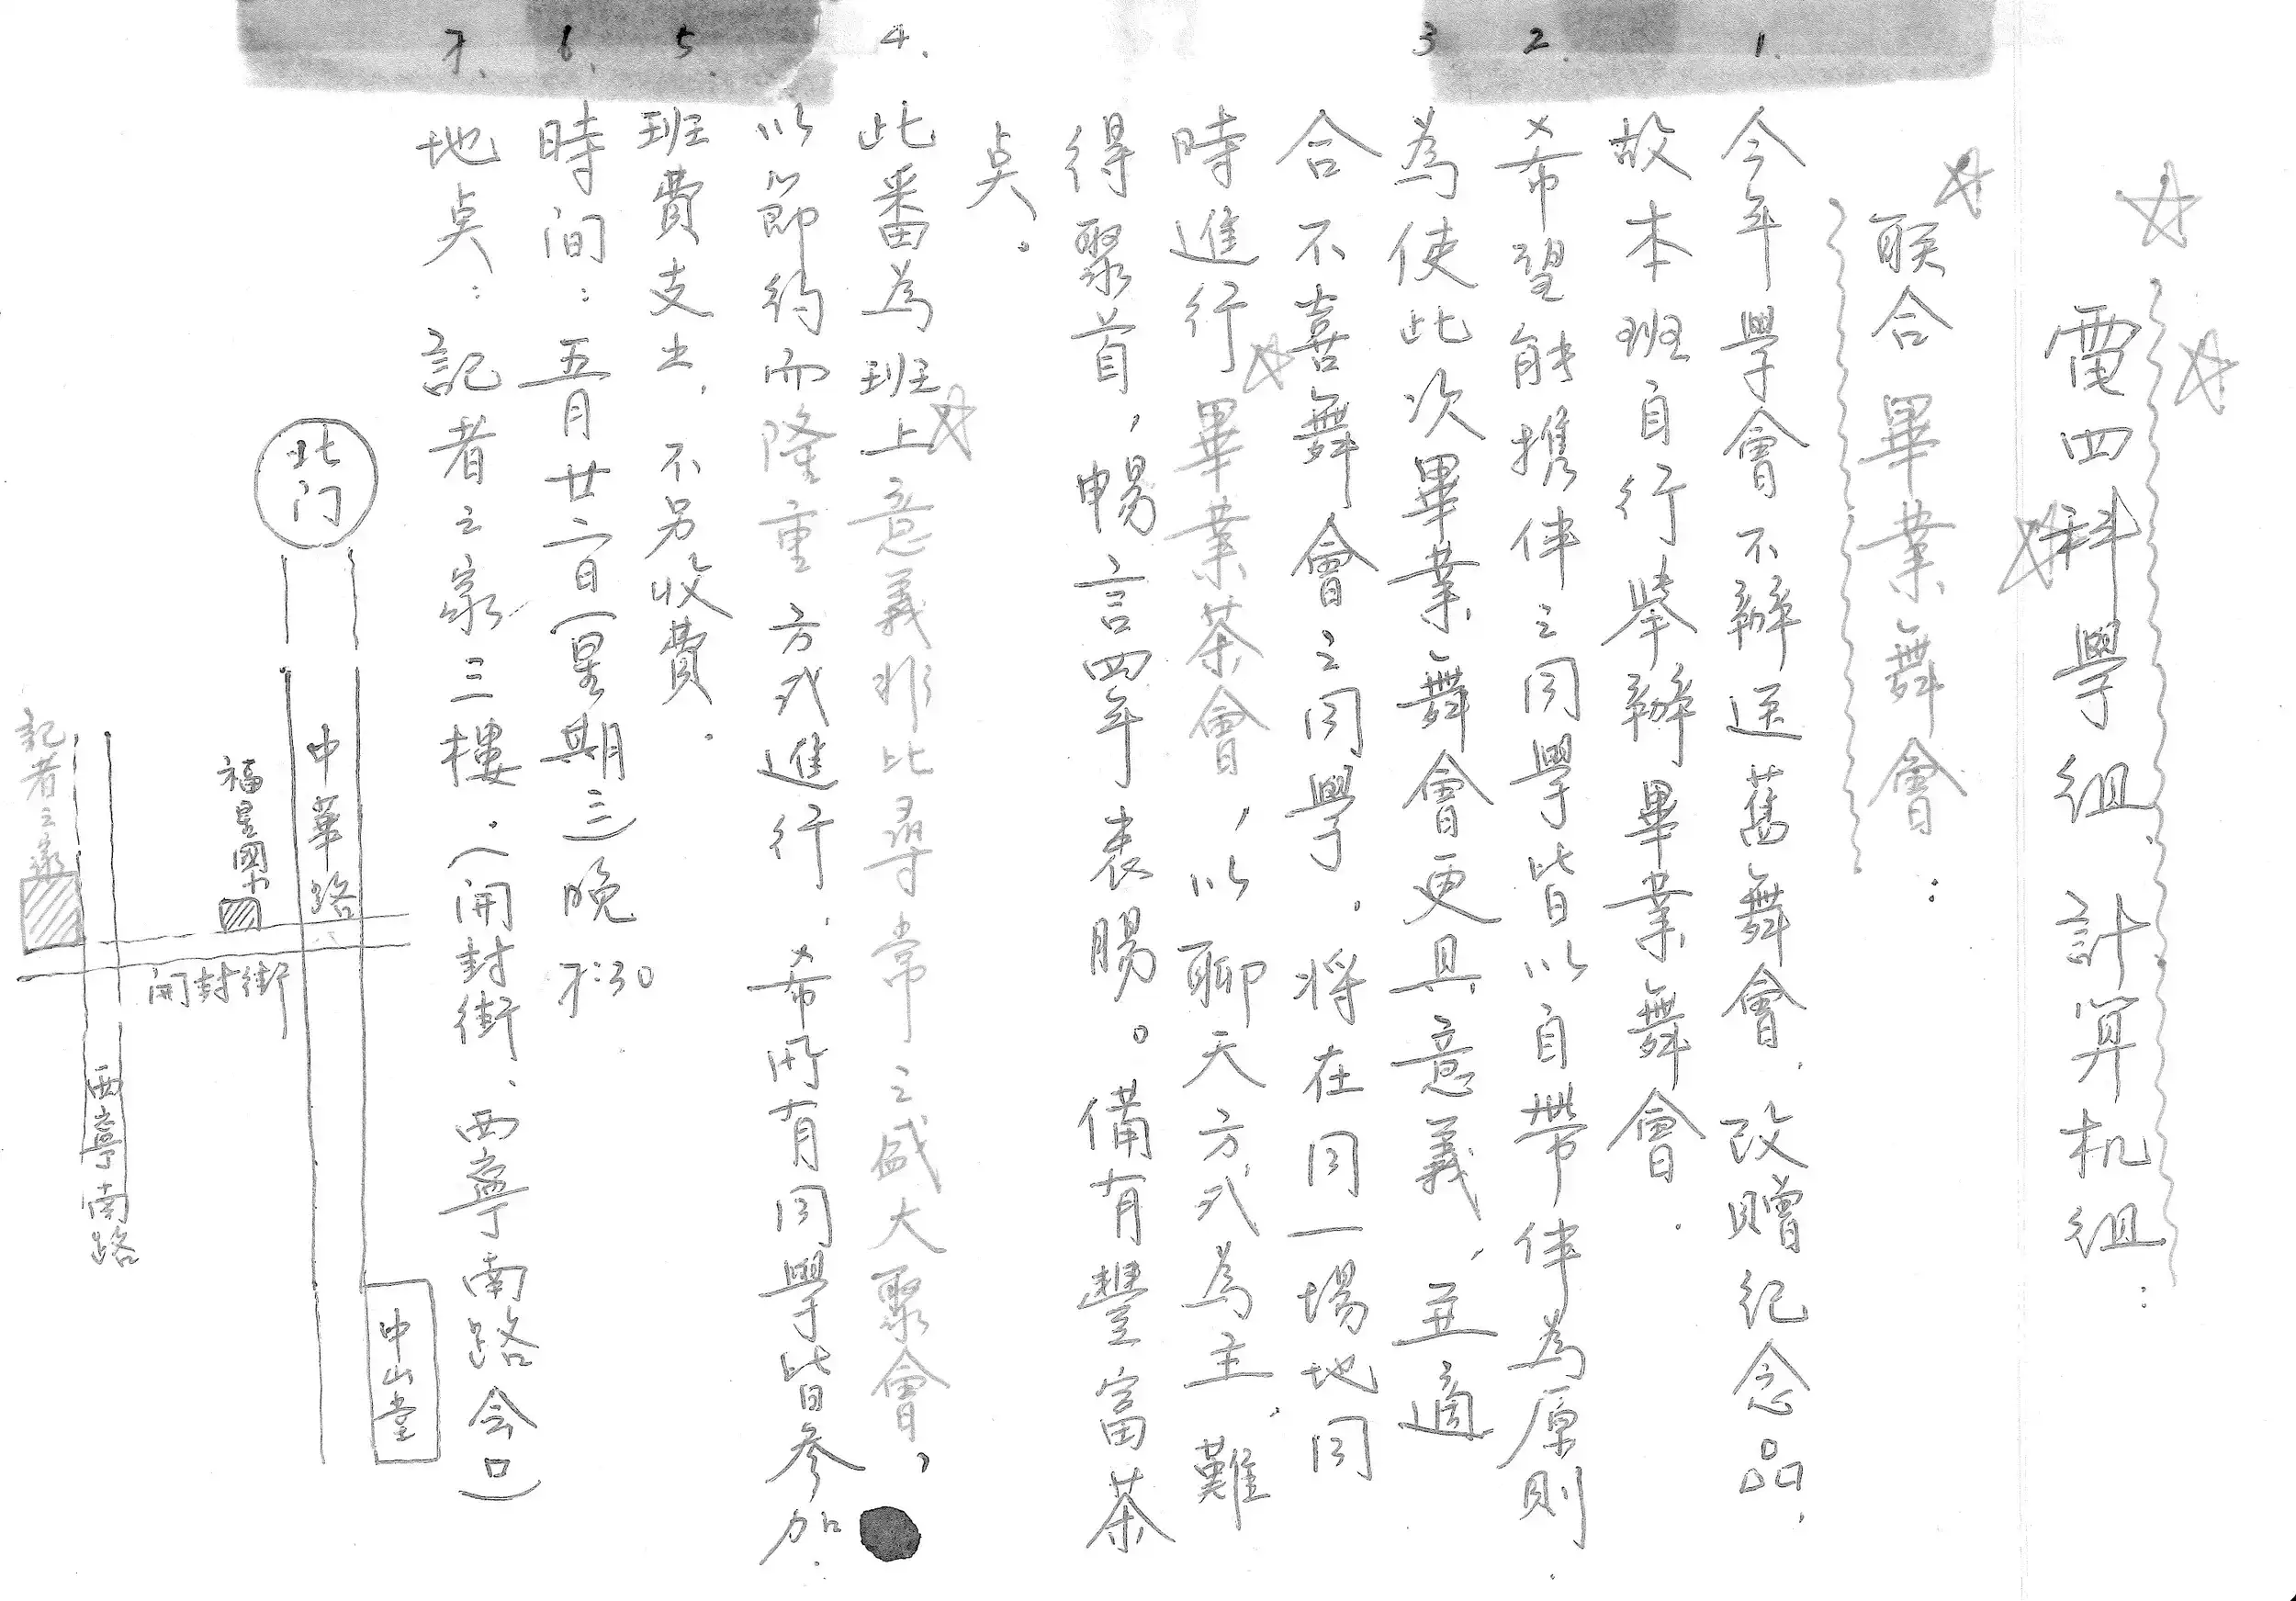 電四科學組、計算机組：
联合 畢業舞會：
1. 今年學會不辦送舊舞會，改贈紀念品，
故本班自行举辦畢業舞會．
2. 希望能携伴之同學皆以自帶伴為原則．
3 為使此次畢業舞會更具意義，並適
合不喜舞會之同學．將在同一場地同
時進行畢業茶會，以聊天方式為主，難
得聚首，暢言四年衷腸。備有豐富茶
点。
4. 此番為班上意義非比尋常之盛大聚會，
以節約而隆重方式進行．希所有同學皆參加．
5. 班費支出，不另收費．
6. 時间：五月廿二日(星期三)晚7:30
7. 地点：記者之家三樓．(開封街、西寧南路会口)
北门
中華路
福星國中
開封街
記者之家
西寧南路
中山堂